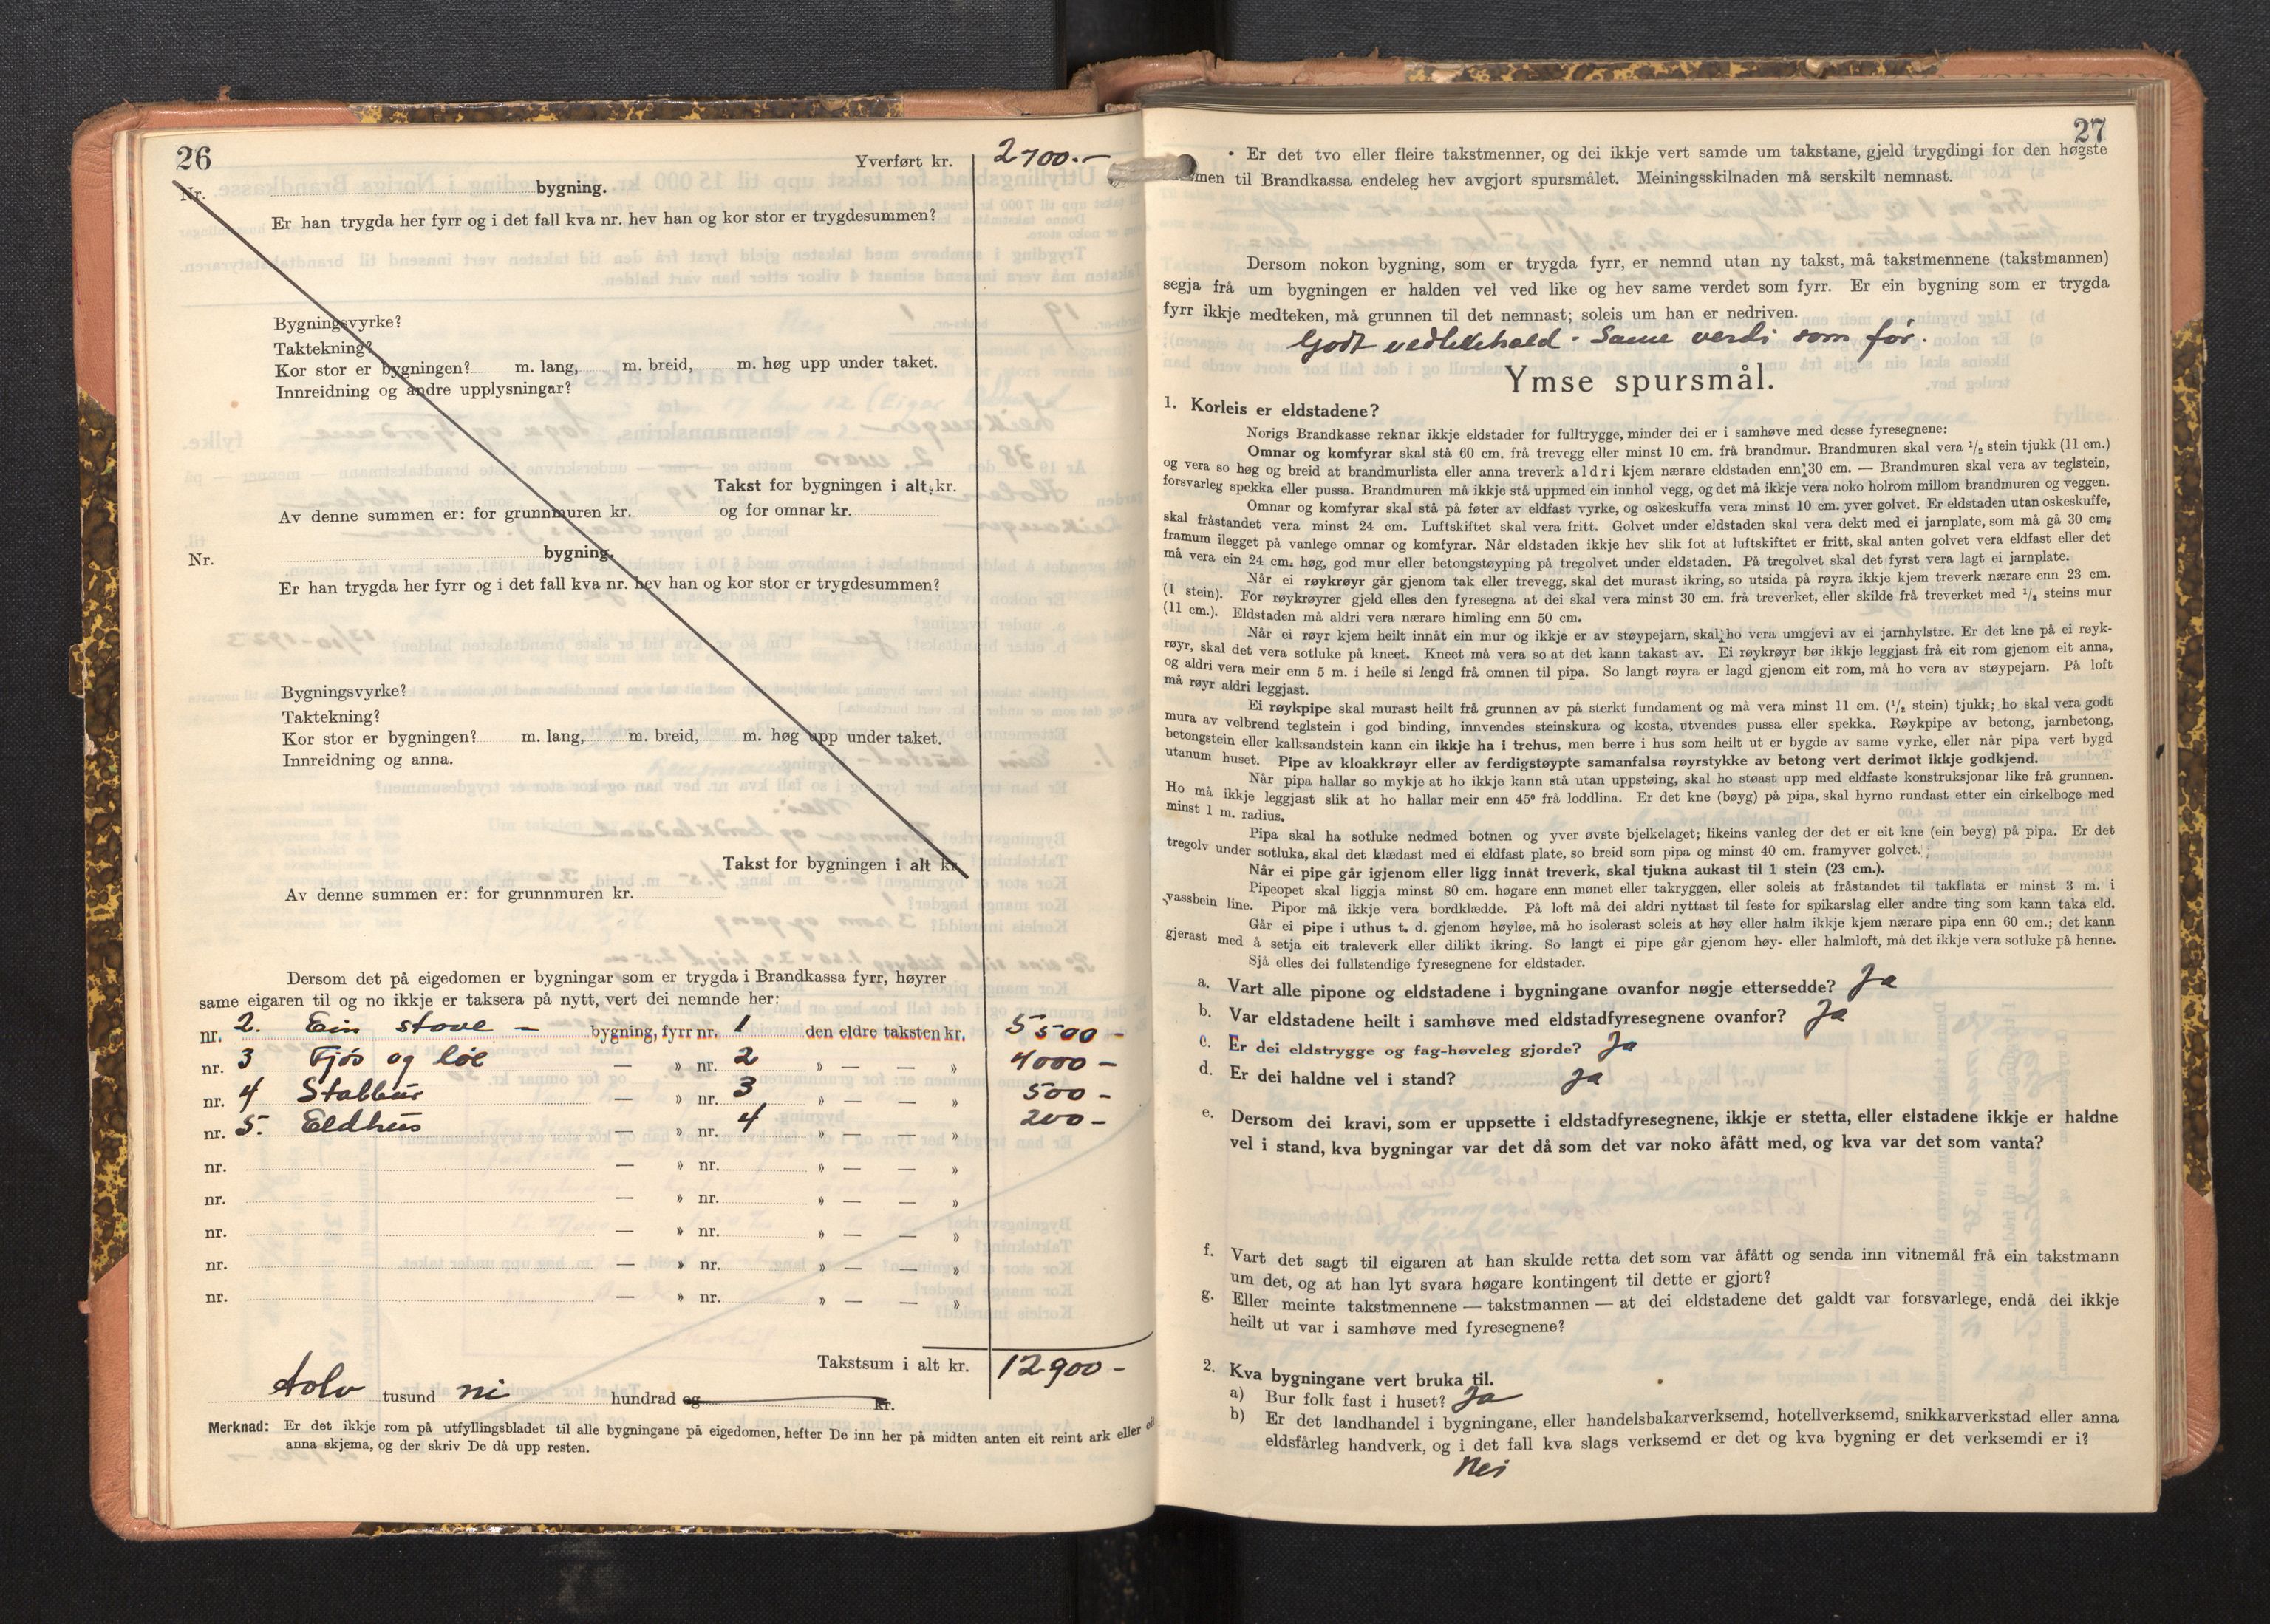 26
Yverført kr. 2700.-
Nr. bygning.
Er han trygda her fyrr og i det fall kva nr. hev han og kor stor er trygdesummen?
Bygningsvyrke?
Taktekning?
Kor stor er bygningen? m. lang, m. breid, m. høg upp under taket.
Innreidning og andre upplysningar?
Takst for bygningen i alt kr.
Av denne summen er: for grunnmuren kr. og for omnar kr.
Nr. bygning.
Er han trygda her fyrr og i det fall kva nr. hev han og kor stor er trygdesummen?
Bygningsvyrke?
Taktekning?
Kor stor er bygningen? m. lang, m. breid, m. høg upp under taket.
Innreidning og anna.
Takst for bygningen i alt kr.
Av denne summen er: for grunnmuren kr.
Dersom det på eigedomen er bygningar som er trygda i Brandkassa fyrr, høyrer
same eigaren til og no ikkje er taksera på nytt, vert dei nemnde her:
nr. 2. Ein stove — bygning, fyrr nr. 1 den eldre taksten kr. 5500 -
nr. 3 Fjös og löe — » nr. 2 » — — » 4000 -
nr. 4 Stabbur — » nr. 3 » — — » 500 -
nr. 5. Eldhus — » nr. 4 » — — » 200 -
nr. — » nr. » — — »
nr. — » nr. » — — »
nr. — » nr. » — — »
nr. — » nr. » — — »
nr. — » nr. » — — »
Takstsum i alt kr. 12900 -
tolv tusund ni hundrad og kr.
Merknad: Er det ikkje rom på utfyllingsbladet til alle bygningane på eigedomen, hefter De inn her på midten anten eit reint ark eller eit
anna skjema, og der skriv De då upp resten.
27
Er det tvo eller fleire takstmenner, og dei ikkje vert samde um takstane, gjeld trygdingi for den høgste
men til Brandkassa endeleg hev avgjort spursmålet. Meiningsskilnaden må serskilt nemnast.
Dersom nokon bygning, som er trygda fyrr, er nemnd utan ny takst, må takstmennene (takstmannen)
segja frå um bygningen er halden vel ved like og hev same verdet som fyrr. Er ein bygning som er trygda
fyrr ikkje medteken, må grunnen til det nemnast; soleis um han er nedriven.
Godt vedlikehald. Same verdi som før.
Ymse spursmål.
1. Korleis er eldstadene?
Norigs Brandkasse reknar ikkje eldstader for fulltrygge, minder dei er i samhøve med desse fyresegnene:
Omnar og komfyrar skal stå 60 cm. frå trevegg eller minst 10 cm. frå brandmur. Brandmuren skal vera 1/2 stein tjukk (11 cm.)
og vera so høg og breid at brandmurlista eller anna treverk aldri kjem nærare eldstaden enn 30 cm. — Brandmuren skal vera av teglstein,
forsvarleg spekka eller pussa. Brandmuren må ikkje stå uppmed ein innhol vegg, og det må ikkje vera noko holrom millom brandmuren og veggen.
Omnar og komfyrar skal stå på føter av eldfast vyrke, og oskeskuffa vera minst 10 cm. yver golvet. Er eldstaden utan oskeskuffe,
skal fråstandet vera minst 24 cm. Luftskiftet skal vera fritt. Golvet under eldstaden skal vera dekt med ei jarnplate, som må gå 30 cm.
framum ilegget på vanlege omnar og komfyrar. Når eldstaden ikkje hev slik fot at luftskiftet er fritt, skal anten golvet vera eldfast eller det
må vera ein 24 cm. høg, god mur eller betongstøyping på tregolvet under eldstaden. På tregolvet skal det fyrst vera lagt ei jarnplate.
Når ei røykrøyr går gjenom tak eller trevegg, skal det murast ikring, so utsida på røyra ikkje kjem treverk nærare enn 23 cm.
(1 stein). For røykrøyrer gjeld elles den fyresegna at dei skal vera minst 30 cm. frå treverket, eller skilde frå treverket med 1/2 steins mur
(11 cm.). Eldstaden må aldri vera nærare himling enn 50 cm.
Når ei røyr kjem heilt innåt ein mur og ikkje er av støypejarn, skal ho vera umgjevi av ei jarnhylstre. Er det kne på ei røyk-
røyr, skal det vera sotluke på kneet. Kneet må vera so at det kann takast av. Ei røykrøyr bør ikkje leggjast frå eit rom gjenom eit anna,
og aldri vera meir enn 5 m. i heile si lengd frå omnen til pipa. So langt røyra er lagd gjenom eit rom, må ho vera av støypejarn. På loft
må røyr aldri leggjast.
Ei røykpipe skal murast heilt frå grunnen av på sterkt fundament og må vera minst 11 cm. (1/2 stein) tjukk; ho skal vera godt
mura av velbrend teglstein i god binding, innvendes steinskura og kosta, utvendes pussa eller spekka. Røykpipe av betong, jarnbetong,
betongstein eller kalksandstein kann ein ikkje ha i trehus, men berre i hus som heilt ut er bygde av same vyrke, eller når pipa vert bygd
utanum huset. Pipe av kloakkrøyr eller av ferdigstøypte samanfalsa røyrstykke av betong vert derimot ikkje godkjend.
Når pipa hallar so mykje at ho ikkje kann stå utan uppstøing, skal ho støast upp med eldfaste konstruksjonar like frå grunnen.
Ho må ikkje leggjast slik at ho hallar meir enn 45° frå loddlina. Er det kne (bøyg) på pipa, skal hyrno rundast etter ein cirkelboge med
minst 1 m. radius.
Pipa skal ha sotluke nedmed botnen og yver øvste bjelkelaget; likeins vanleg der det er eit kne (ein bøyg) på pipa. Er det
tregolv under sotluka, skal det klædast med ei eldfast plate, so breid som pipa og minst 40 cm. framyver golvet.
Når ei pipe går igjenom eller ligg innåt treverk, skal tjukna aukast til 1 stein (23 cm.).
Pipeopet skal liggja minst 80 cm. høgare enn mønet eller takryggen, eller soleis at fråstandet til takflata er minst 3 m. i
vassbein line. Pipor må ikkje vera bordklædde. På loft må dei aldri nyttast til feste for spikarslag eller andre ting som kann taka eld.
Går ei pipe i uthus t. d. gjenom høyløe, må ho isolerast soleis at høy eller halm ikkje kjem nærare pipa enn 60 cm.; det kann
gjerast med å setja eit traleverk eller dilikt ikring. So langt ei pipe går gjenom høy- eller halmloft, må det ikkje vera sotluke på henne.
Sjå elles dei fullstendige fyresegnene for eldstader.
a. Vart alle pipone og eldstadene i bygningane ovanfor nøgje ettersedde? Ja
b. Var eldstadene heilt i samhøve med eldstadfyresegnene ovanfor? Ja
c. Er dei eldstrygge og fag-høveleg gjorde? Ja
d. Er dei haldne vel i stand? Ja
e. Dersom dei kravi, som er uppsette i eldstadfyresegnene, ikkje er stetta, eller elstadene ikkje er haldne
vel i stand, kva bygningar var det då som det var noko åfått med, og kva var det som vanta?
f. Vart det sagt til eigaren at han skulde retta det som var åfått og senda inn vitnemål frå ein takstmann
um det, og at han lyt svara høgare kontingent til dette er gjort?
g. Eller meinte takstmennene — takstmannen — at dei eldstadene det galdt var forsvarlege, endå dei ikkje
heilt ut var i samhøve med fyresegnene?
2. Kva bygningane vert bruka til.
a) Bur folk fast i huset? Ja
b) Er det landhandel i bygningane, eller handelsbakarverksemd, hotellverksemd, snikkarverkstad eller anna
eldsfårleg handverk, og i det fall kva slags verksemd er det og kva bygning er det verksemdi er i?
Nei